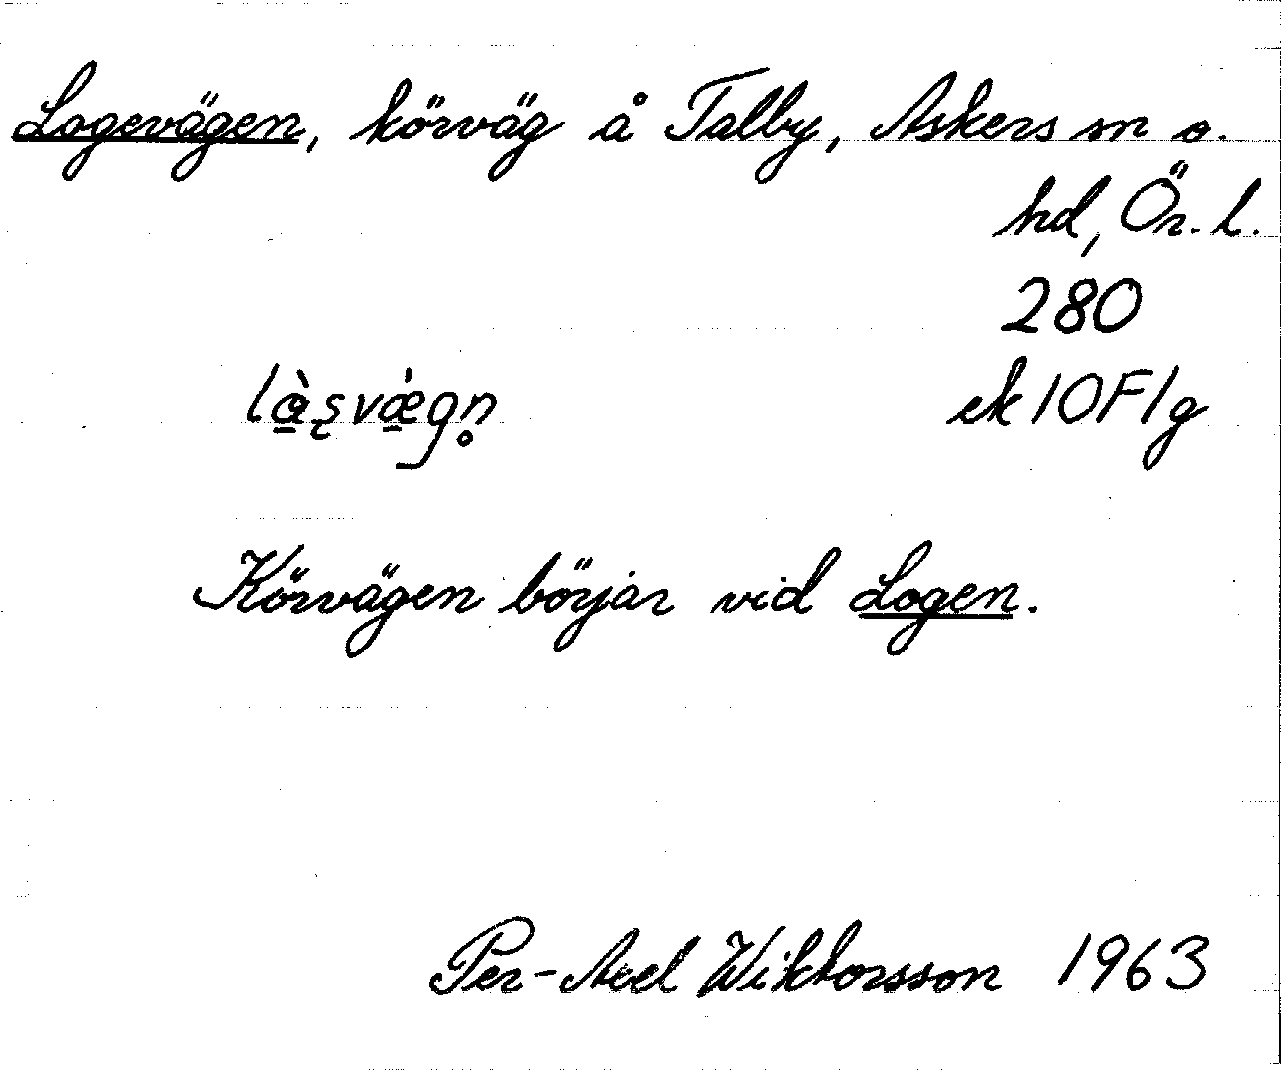 Logevägen, körväg å Talby, Askers sn o.
hd, Ör. l.
280
là̱s̨væ̱̀gn̥ ek 10F1g
Körvägen börjar vid Logen.
Per-Axel Wiktorsson 1963